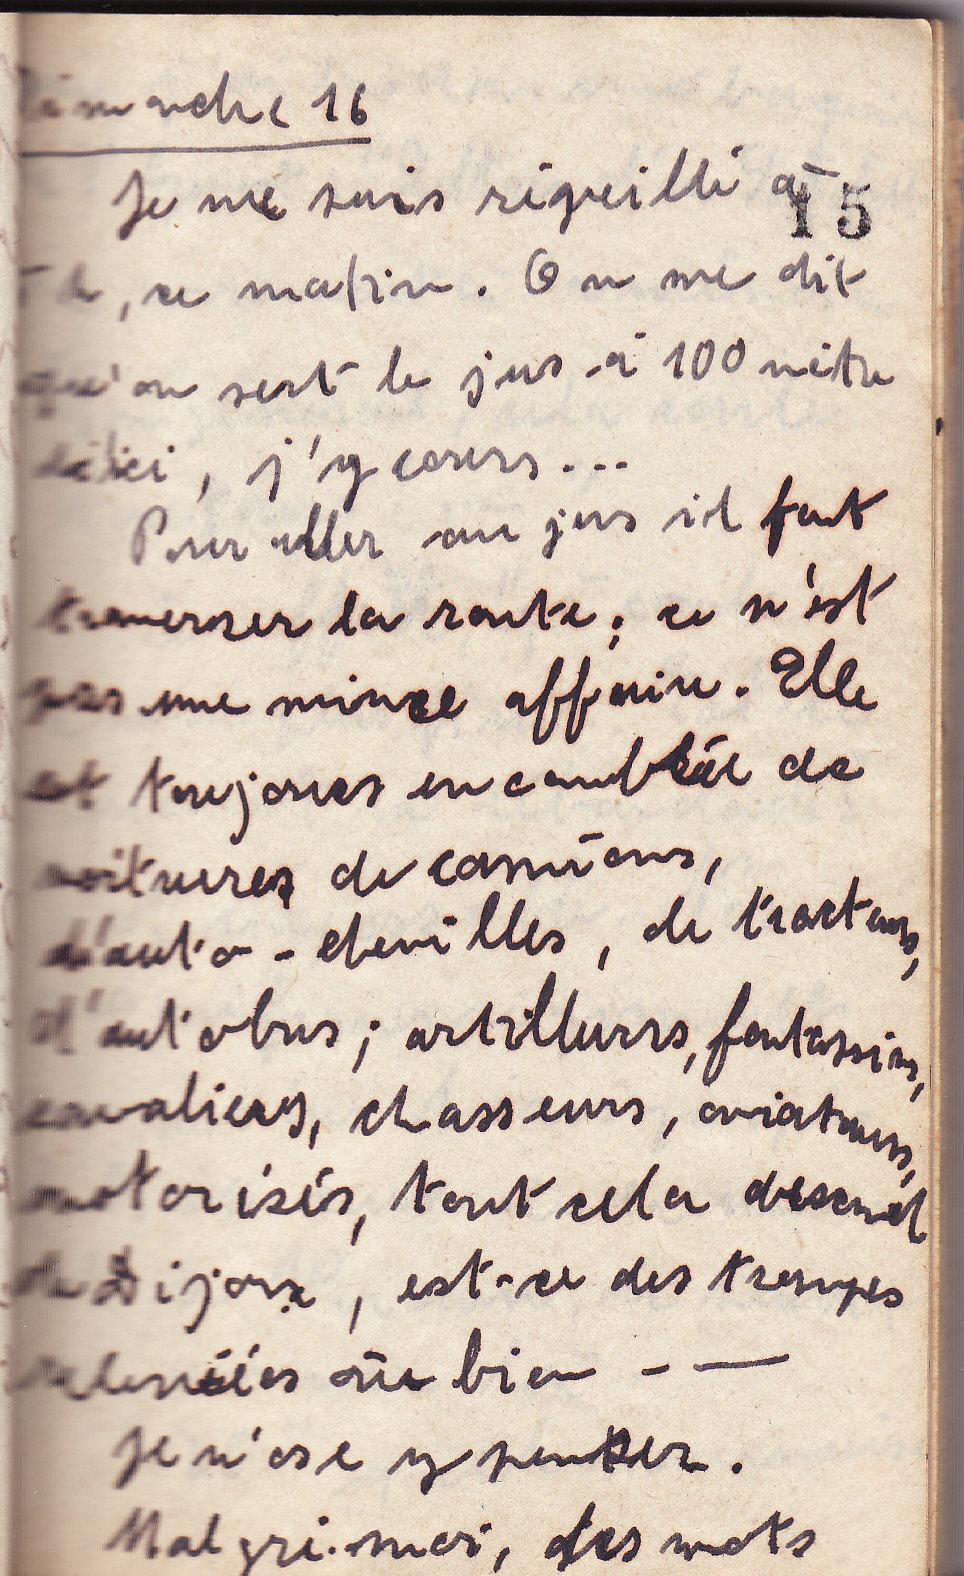 Dimanche 16
15
Je me suis réveillé à
h, ce matin. On me dit
qu'on sert le jus à 100 mètre
d'ici, j'y cours...
Pour aller au jus il faut
traverser la route; ce n'est
pas une mince affaire. Elle
est toujours encombrée de
voitures de camions,
d'auto-chenilles, de tracteurs,
d'autobus; artilleurs, fantassins,
cavaliers, chasseurs, aviateurs,
motorisés, tout cela descend
de Dijon, est-ce des troupes
relevées ou bien - —
Je n'ose y penser.
Malgré moi, des mots